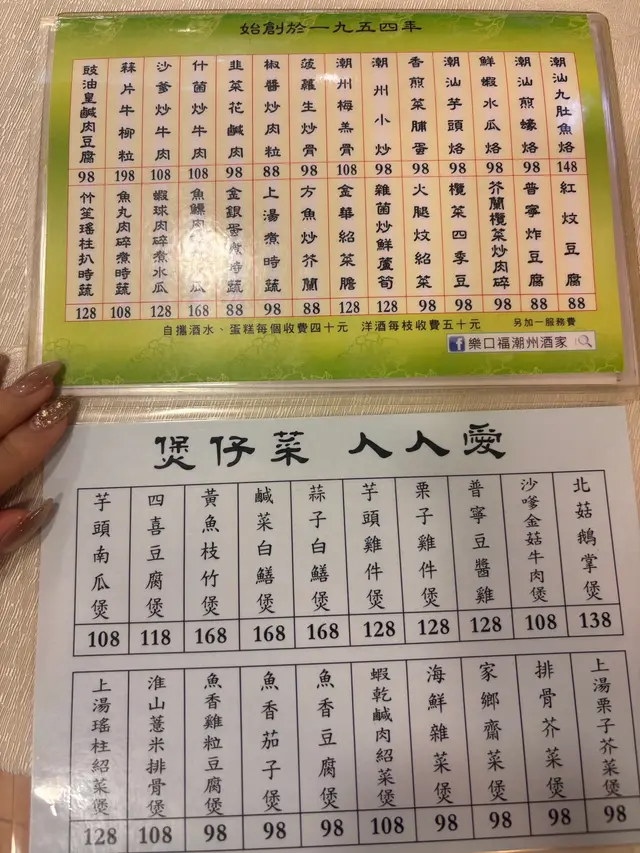 始創於一九五四年
潮汕九肚魚烙 148
潮汕煎蠔烙 98
鮮蝦水瓜烙 98
潮汕芋頭烙 98
香煎菜脯蛋 88
潮州小炒 98
潮州梅羔骨 108
菠蘿生炒骨 88
椒醬炒肉粒 88
韭菜花鹹肉 98
什菌炒牛肉 108
沙爹炒牛肉 108
蒜片牛柳粒 198
豉油皇鹹肉豆腐 98
紅炆豆腐 88
普寧炸豆腐 88
芥蘭欖菜炒肉碎 98
欖菜四季豆 98
火腿炆紹菜 98
雜菌炒鮮蘆筍 128
金華紹菜膽 128
方魚炒芥蘭 88
上湯煮時蔬 98
金銀蛋煮時蔬 88
魚鰾肉碎煮水瓜 168
蝦球肉碎煮水瓜 128
魚丸肉碎煮時蔬 108
竹笙瑤柱扒時蔬 128
自攜酒水、蛋糕每個收費四十元 洋酒每枝收費五十元 另加一服務費
f 樂口福潮州酒家
煲仔菜 人人愛
北菇鵝掌煲 138
沙嗲金菇牛肉煲 108
普寧豆醬雞 128
栗子雞件煲 128
芋頭雞件煲 128
蒜子白鱔煲 168
鹹菜白鱔煲 168
黃魚枝竹煲 168
四喜豆腐煲 118
芋頭南瓜煲 108
上湯栗子芥菜煲 98
排骨芥菜煲 98
家鄉齋菜煲 98
海鮮雜菜煲 98
蝦乾鹹肉紹菜煲 108
魚香豆腐煲 98
魚香茄子煲 98
魚香雞粒豆腐煲 98
淮山薏米排骨煲 108
上湯瑤柱紹菜煲 128